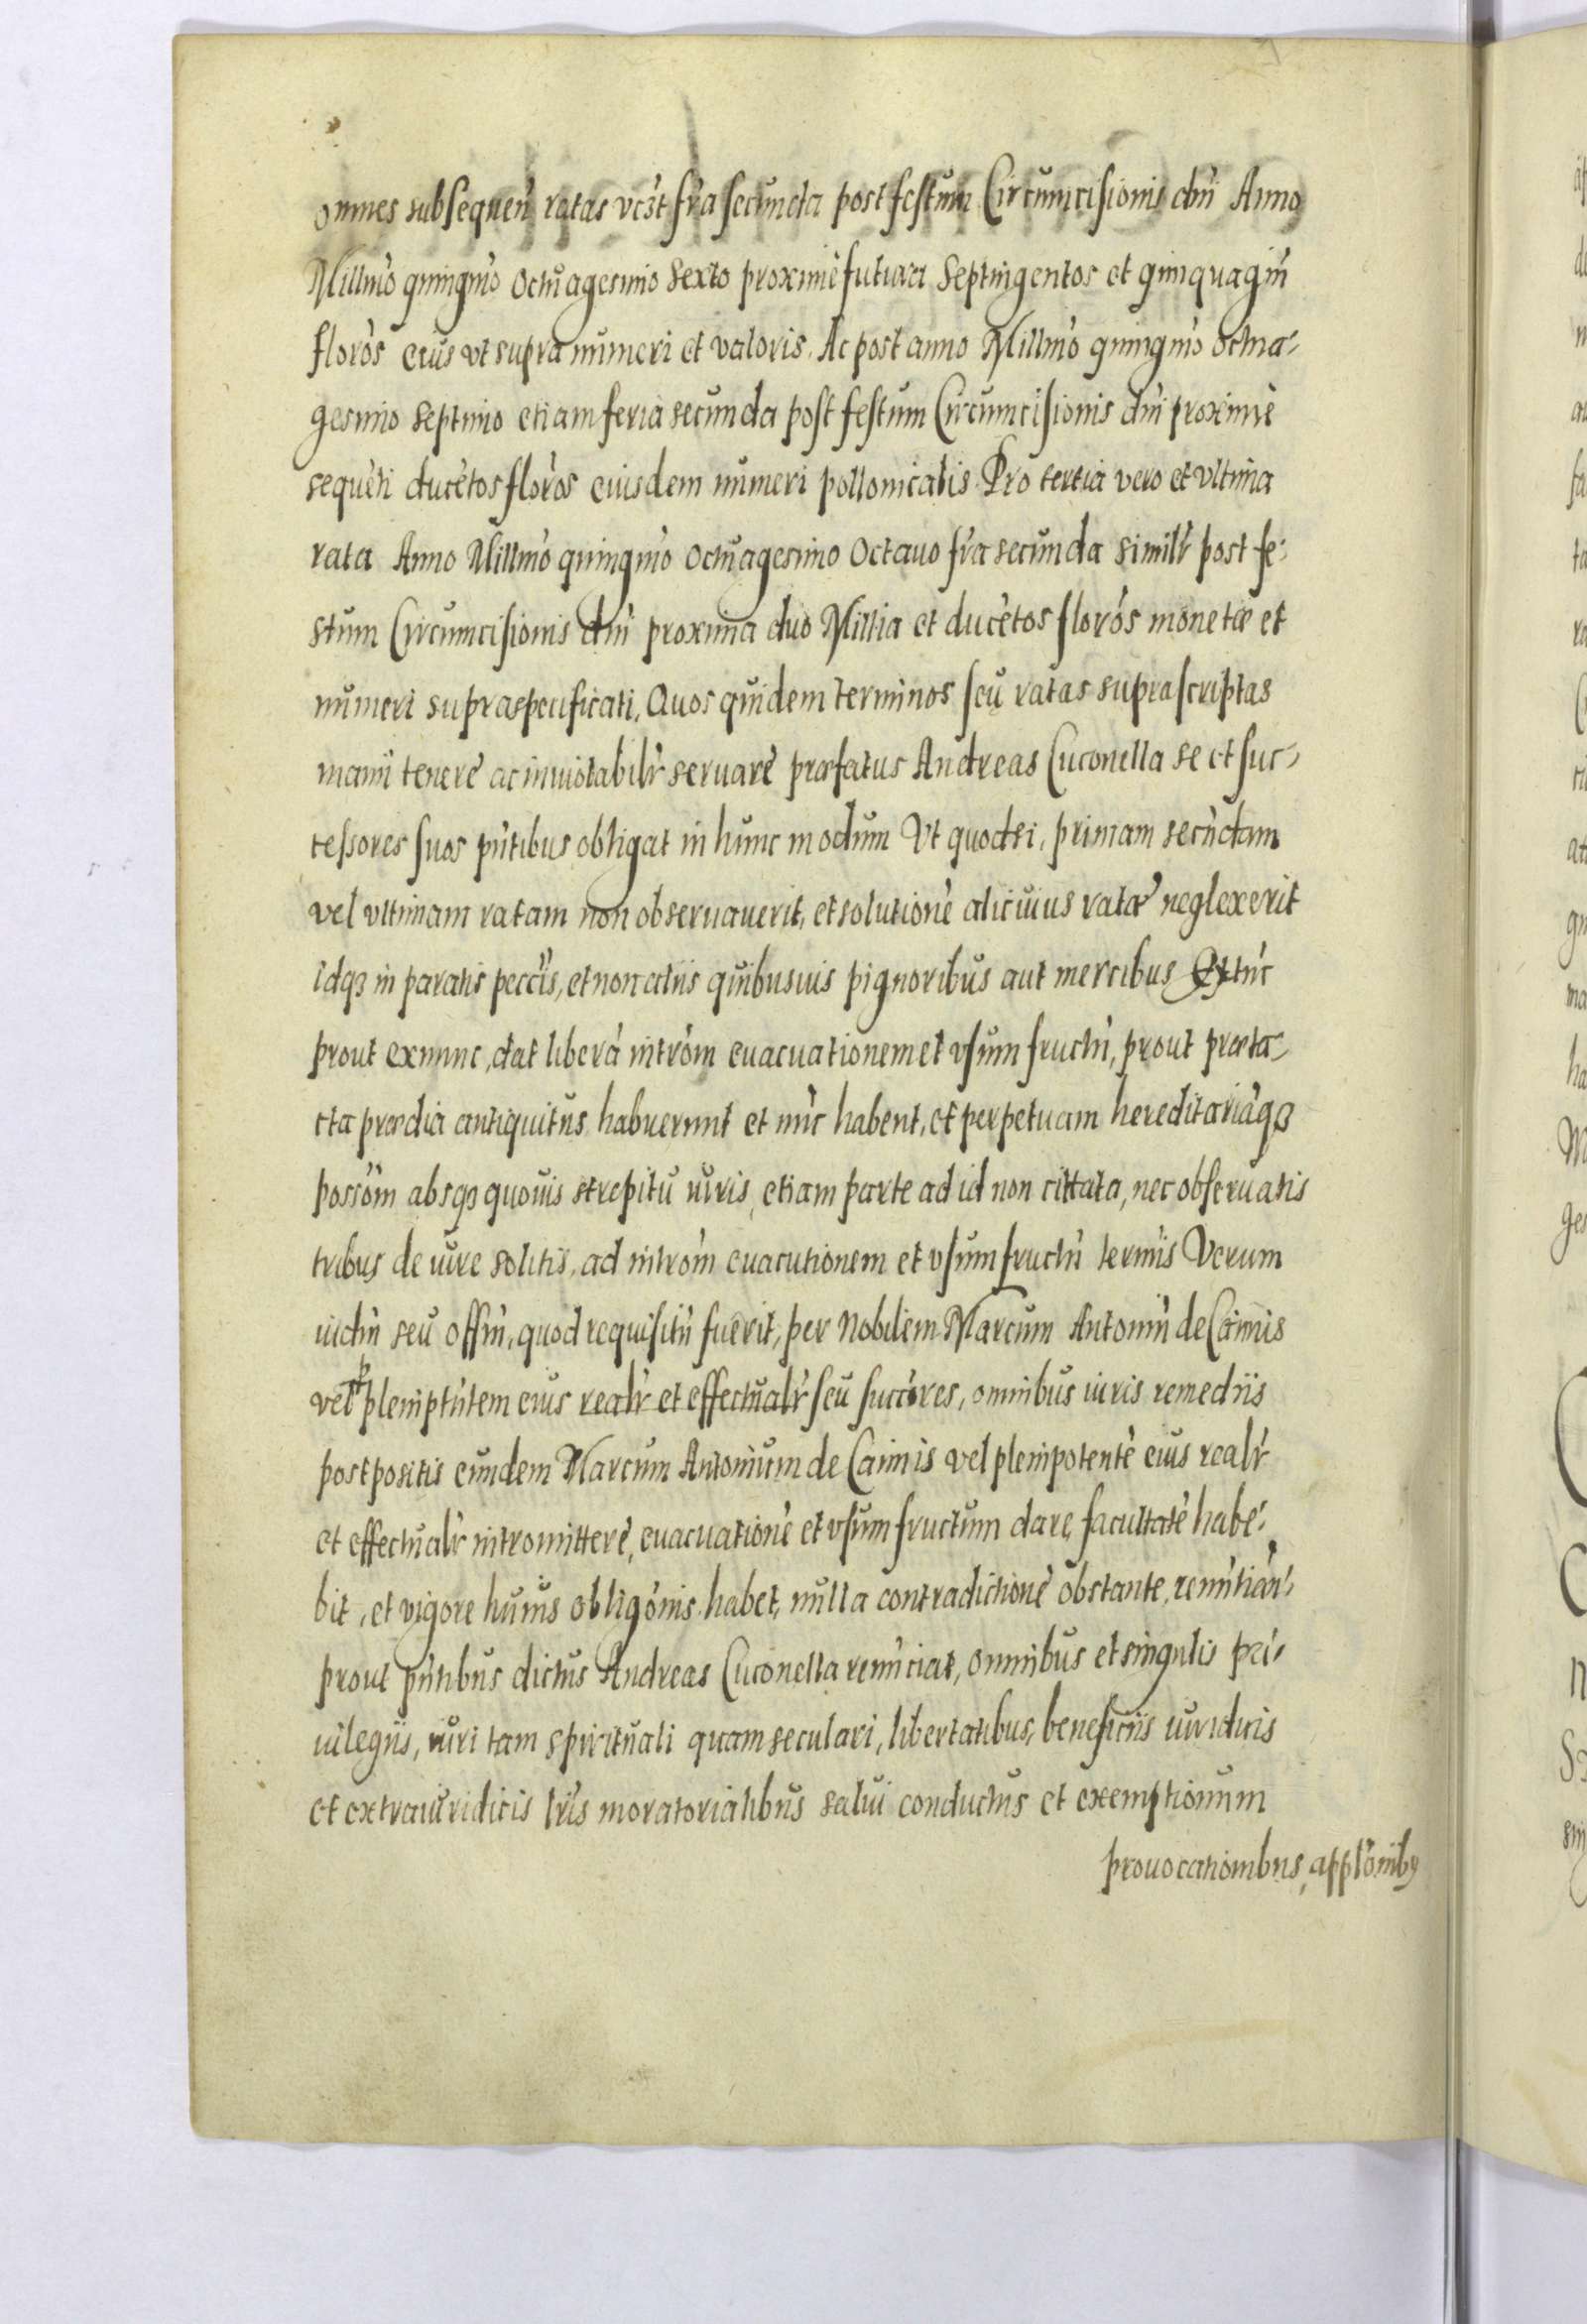 omnes subsequen̄ ratas vczt fr̄a secunda post festum Circumcisionis dn̄i Anno
Millm̄o quingm̄o octuagesimo sexto proximè futura septingentos et quinquagin̄
florōs eius vt supra numeri et valoris. Ac post anno Millm̄o quingm̄o octua-
gesimo septimo etiam feria secunda post festum Circumcisionis dn̄i proximè
sequēti ducētos florōs euisdem numeri pollonicalis. Pro tertia vero et vltima
rata Anno Millm̄o quingm̄o octuagesimo octauo fr̄a secunda similr̄ post fe-
stum Circumcisionis dn̄i proxima duo Millia et ducētos florōs monetæ et
numeri supraspecificati, Quos quidem terminos seu ratas suprascriptas
manu tenere ac inuiolabilr̄ seruare præfatus Andreas Cuconella se et suc-
cessores suos pn̄tibus obligat in hunc modum Vt quod si, primam secūdam
vel vltimam ratam non obseruauerit, et solutionē alicuius ratæ neglexerit
idqȝ in paratis peccīs, et non aliis quibusuis pignoribus aut mercibus Extūc
prout exnunc, dat liberā intrōm euacuationem et vsumfructū, prout præta-
cta prædia antiquitus habuerunt et nūc habent, et perpetuam hereditariāqȝ
possōm absqȝ quouis strepitu iuris, etiam parte ad id non cittata, nec obseruatis
tribus de iure solitis, ad intrōm euacutionem et vsumfructū termīs Verum
iudm̄ seu offm̄, quod requisitū fuerit, per Nobilem Marcum Antoniū de Caimis
vel p plenipn̄tem eius realr̄ et effectualr̄ seu succōres, omnibus iuris remediis
postpositis eundem Marcum Antonium de Caimis vel plenipotentē eius realr̄
et effectualr̄ intromittere, euacuationē et vsumfructum dare, facultatē habe-
bit, et vigore huius obligōnis habet, nulla contradictionē obstante, renūtian̄-
prout pn̄tibus dictus Andreas Cuconella renūciat, omnibus et singulis pri-
uilegiis, iuri tam spirituali quam seculari, libertatibus, beneficiis iuridicis
et extraiuridicis lrīs moratorialibus salui conductus et exemptionum
prouocationibus, applōnibꝰ